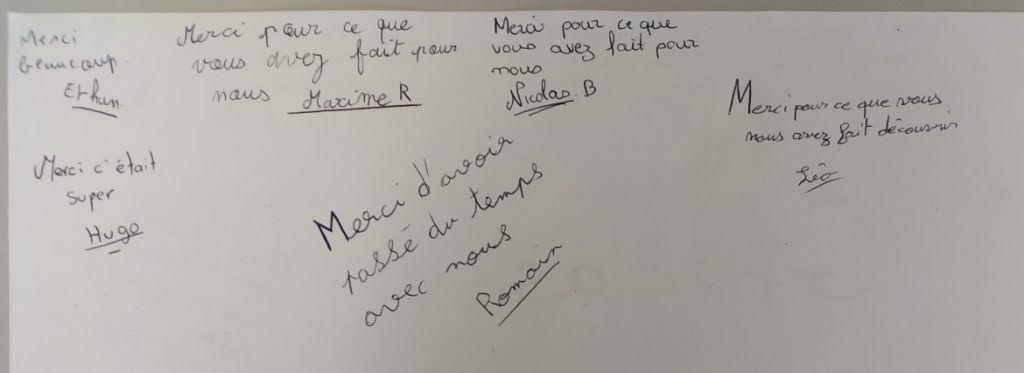 Merci
beaucoup
Ethan.
Merci pour ce que
vous avez fait pour
nous Maxime R
Merci pour ce que
vous avez fait pour
nous
Nicolas. B
Merci pour ce que vous
nous avez fait découvrir
Léo
Merci c'était
super
Hugo
Merci d'avoir
passé du temps
avec nous
Romain